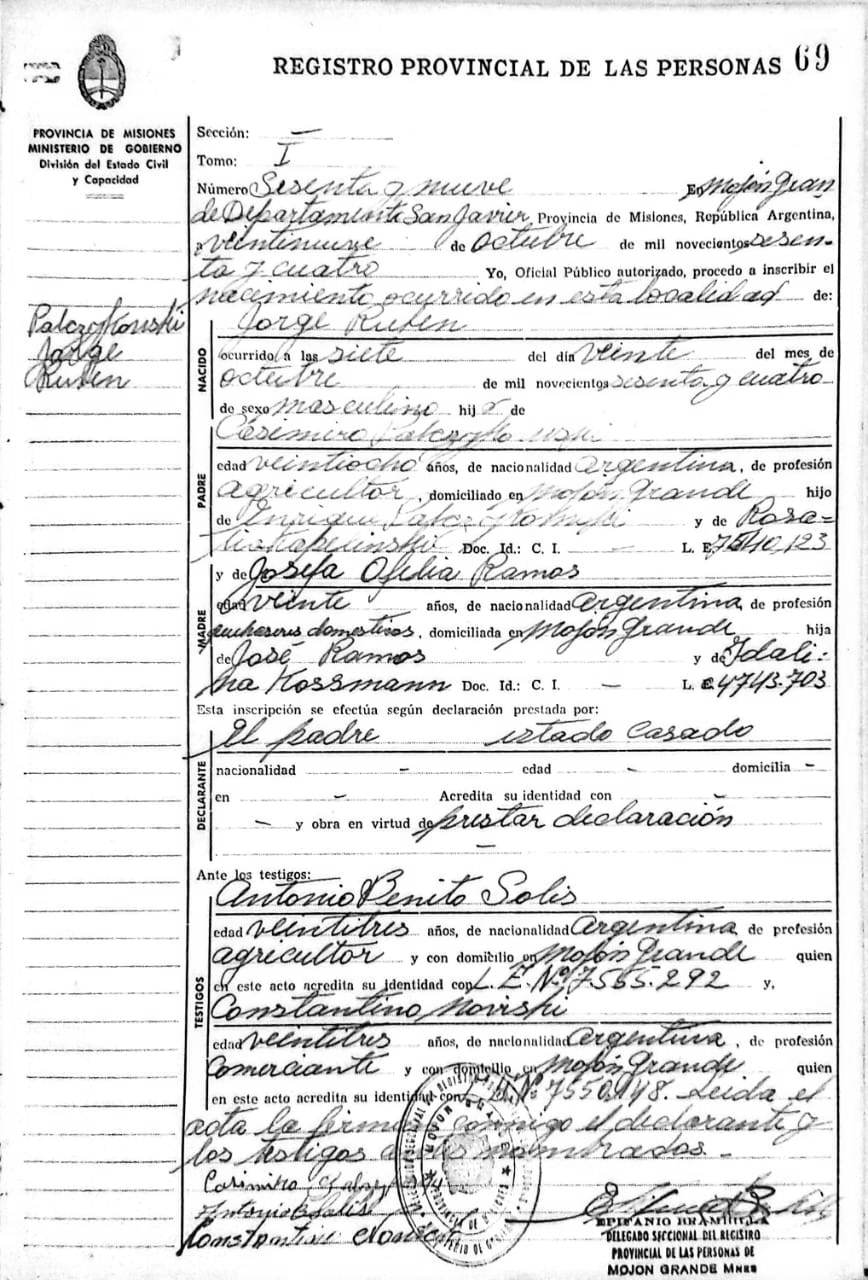 REGISTRO PROVINCIAL DE LAS PERSONAS 69
PROVINCIA DE MISIONES
MINISTERIO DE GOBIERNO
División del Estado Civil
y Capacidad
Sección: —
Tomo: I
Número Sesenta y nueve En Mojón Gran
de Departamento San Javier, Provincia de Misiones, República Argentina,
a veintinueve de Octubre de mil novecientos sesen-
ta y cuatro Yo, Oficial Público autorizado, procedo a inscribir el
nacimiento ocurrido en esta localidad de:
Jorge Ruben
Jorge
Ruben
NACIDO
ocurrido a las siete del día veinte del mes de
octubre de mil novecientos sesenta y cuatro
de sexo masculino hijo de
Casimiro
PADRE
edad veintiocho años, de nacionalidad Argentina, de profesión
agricultor, domiciliado en Mojón Grande hijo
de Enrique y de Rosa-
Doc. Id.: C. I. — L. E.
y de Josefa Ofelia Ramos
MADRE
edad veinte años, de nacionalidad Argentina, de profesión
quehaceres domesticos, domiciliada en Mojón Grande hija
de José Ramos y de Idali-
na Kossmann Doc. Id.: C. I. — L. E. 4743.703
Esta inscripción se efectúa según declaración prestada por:
El padre estado casado
DECLARANTE
nacionalidad — edad — domicilia —
en — Acredita su identidad con —
— y obra en virtud de prestar declaración
—
Ante los testigos:
Antonio Benito Solis
TESTIGOS
edad veintitres años, de nacionalidad Argentina, de profesión
agricultor y con domicilio en Mojón Grande quien
en este acto acredita su identidad con L. E. Nº 7.565.292 y,
Constantino Noviski
edad veintitres años, de nacionalidad Argentina, de profesión
Comerciante y con domicilio en Mojón Grande quien
en este acto acredita su identidad con Nº 7550.148. Leida el
acta la firman conmigo el declarante y
los testigos antes nombrados.-
Casimiro
Antonio B Solis
Constantino
EPIFANIO BRAMBILLA
DELEGADO SECCIONAL DEL REGISTRO
PROVINCIAL DE LAS PERSONAS DE
MOJON GRANDE Mnes